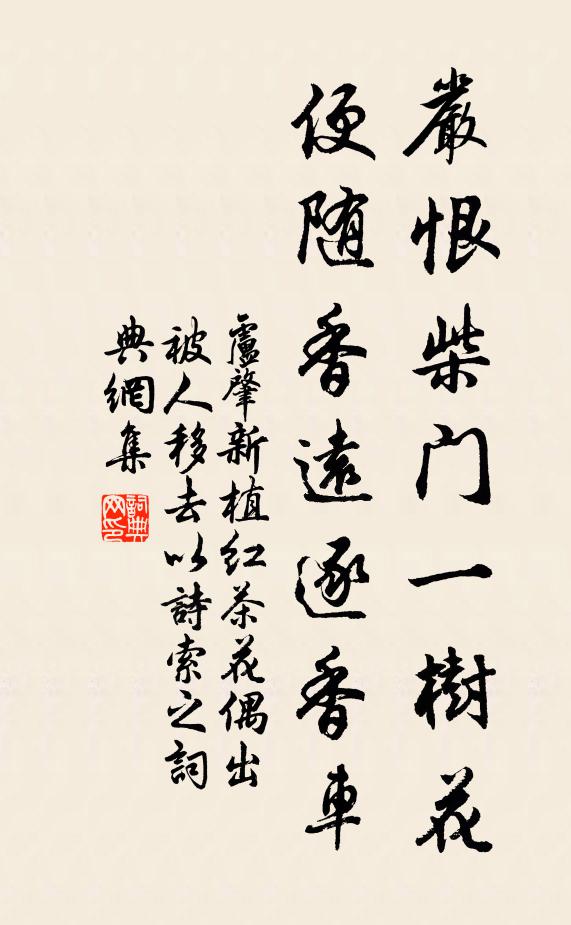 嚴恨柴門一樹花
便随香遠逐香車
盧肇新植紅茶花偶出
被人移去以詩索之詞
典網集
詞典
网印